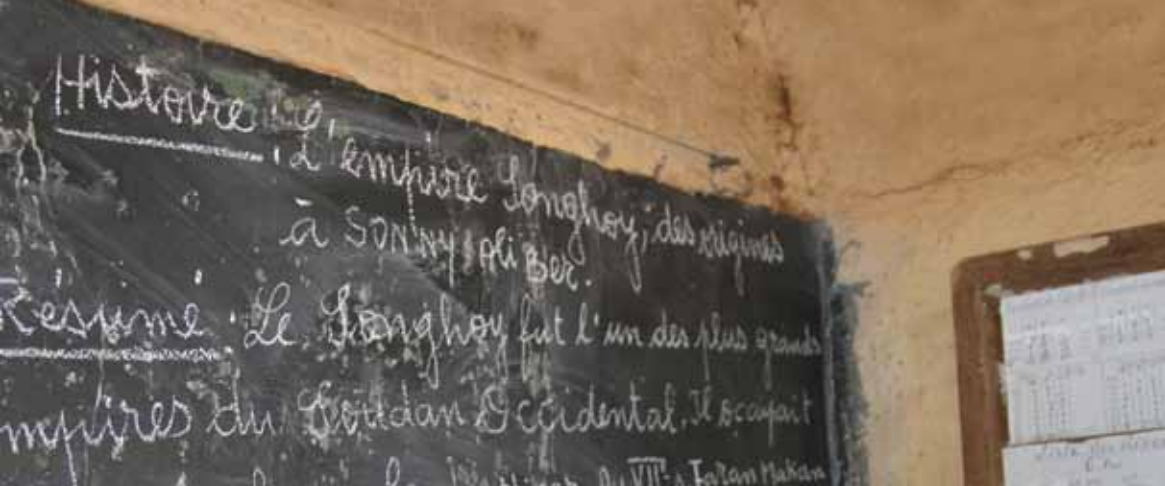 Histoire : L'empire Songhoy, des origines
à SONNY Ali Ber.
Résumé : Le Songhoy fut l'un des plus grands
empires du Soudan Occidental. Il occupait
du VIIe s Faran Makan